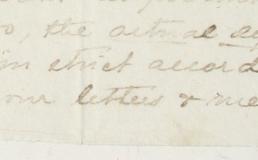 o, the actual
in strict accord
our letters & me